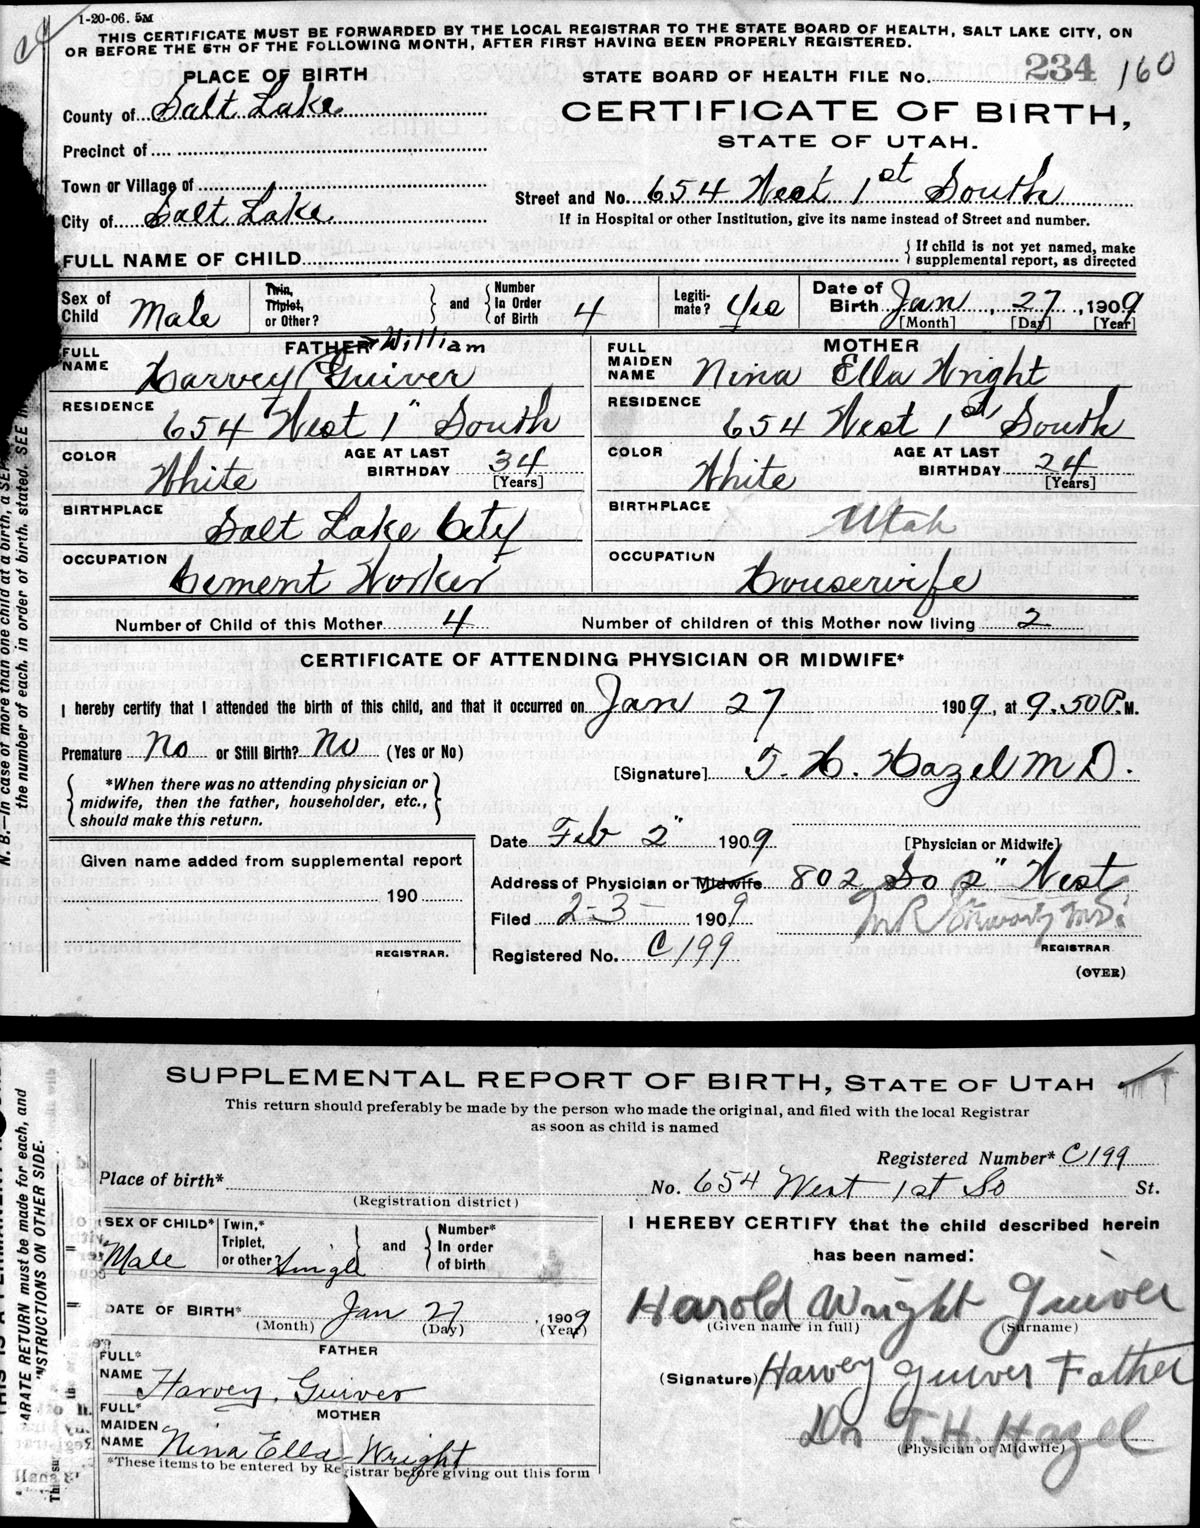 1-20-06. 5M
THIS CERTIFICATE MUST BE FORWARDED BY THE LOCAL REGISTRAR TO THE STATE BOARD OF HEALTH, SALT LAKE CITY, ON
OR BEFORE THE 5TH OF THE FOLLOWING MONTH, AFTER FIRST HAVING BEEN PROPERLY REGISTERED.
PLACE OF BIRTH
STATE BOARD OF HEALTH FILE No. 234 160
County of Salt Lake
CERTIFICATE OF BIRTH,
STATE OF UTAH.
Precinct of
Town or Village of
Street and No. 654 West 1st South
City of Salt Lake
If in Hospital or other Institution, give its name instead of Street and number.
FULL NAME OF CHILD
If child is not yet named, make
supplemental report, as directed
Sex of Child Male
Twin, Triplet, or Other?
and
Number In Order of Birth 4
Legitimate? Yes
Date of Birth Jan 27, 1909
[Month] [Day] [Year]
FATHER William
FULL NAME Harvey Guiver
MOTHER
FULL MAIDEN NAME Nina Ella Wright
RESIDENCE 654 West 1" South
RESIDENCE 654 West 1st South
COLOR White
AGE AT LAST BIRTHDAY 34 [Years]
COLOR White
AGE AT LAST BIRTHDAY 24 [Years]
BIRTHPLACE Salt Lake City
BIRTHPLACE Utah
OCCUPATION Cement Worker
OCCUPATION Housewife
Number of Child of this Mother 4
Number of children of this Mother now living 2
CERTIFICATE OF ATTENDING PHYSICIAN OR MIDWIFE*
I hereby certify that I attended the birth of this child, and that it occurred on Jan 27 1909, at 9.50 P.M.
Premature No or Still Birth? No (Yes or No)
[Signature] T. H. Hazel M D.
*When there was no attending physician or
midwife, then the father, householder, etc.,
should make this return.
Date Feb 2" 1909
[Physician or Midwife]
Given name added from supplemental report
190
REGISTRAR.
Address of Physician or Midwife 802 So 2" West
Filed 2-3- 1909
Registered No. C199
REGISTRAR
(OVER)
N. B.—In case of more than one child at a birth, a SEP
the number of each, in order of birth, stated. SEE IN
SUPPLEMENTAL REPORT OF BIRTH, STATE OF UTAH
This return should preferably be made by the person who made the original, and filed with the local Registrar
as soon as child is named
Registered Number* C199
Place of birth*
(Registration district)
No. 654 West 1st So St.
SEX OF CHILD* Male
Twin,* Triplet, or other? Single
and
Number* In order of birth
I HEREBY CERTIFY that the child described herein
has been named:
DATE OF BIRTH* Jan 27, 1909
(Month) (Day) (Year)
Harold Wright Guiver
(Given name in full) (Surname)
FATHER
FULL* NAME Harvey Guiver
(Signature) Harvey Guiver Father
MOTHER
FULL* MAIDEN NAME Nina Ella Wright
Dr T. H. Hazel
(Physician or Midwife)
*These items to be entered by Registrar before giving out this form
ARATE RETURN must be made for each, and
INSTRUCTIONS ON OTHER SIDE.